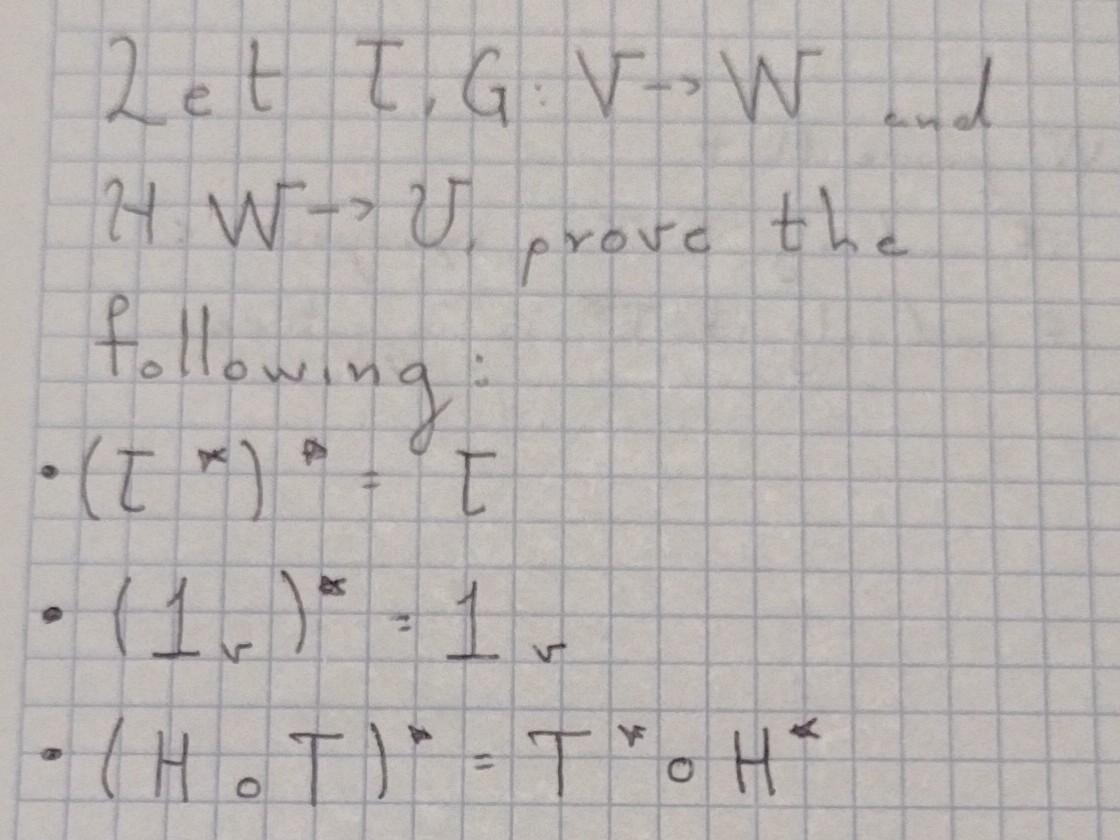 Let T, G: V→W and
H: W→U, prove the
following:
• (T*)* = T
• (1_v)* = 1_v
• (H∘T)* = T*∘H*